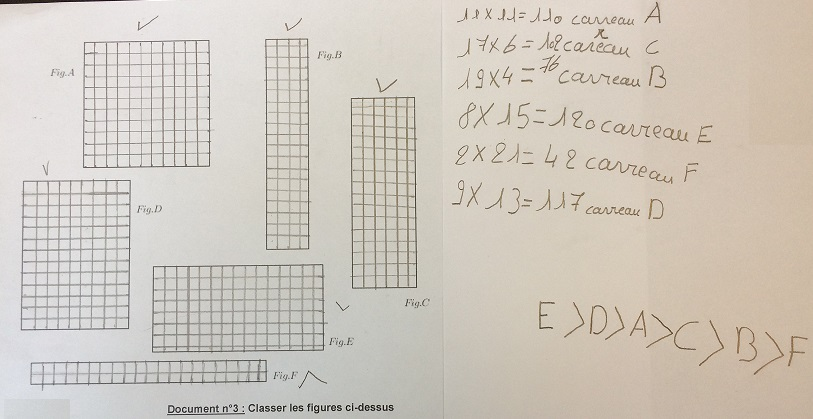 Fig.A
Fig.B
Fig.C
Fig.D
Fig.E
Fig.F
Document n°3 : Classer les figures ci-dessus
11 x 11 = 110 carreau A
17 x 6 = 102 carreau C
19 x 4 = 76 carreau B
8 x 15 = 120 carreau E
2 x 21 = 42 carreau F
9 x 13 = 117 carreau D
E > D > A > C > B > F